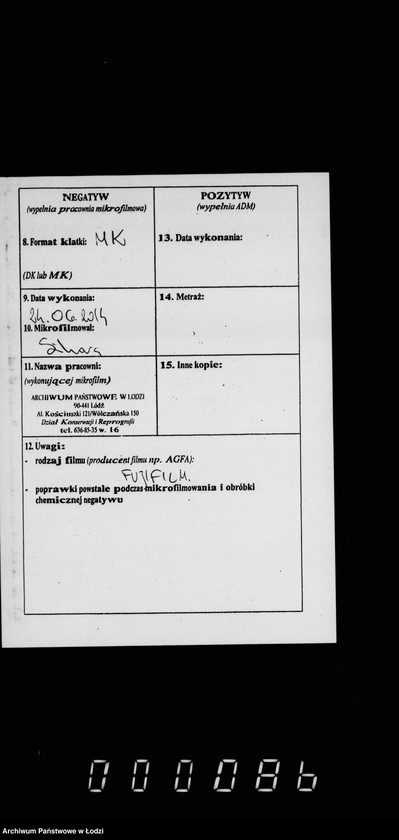 NEGATYW
(wypełnia pracownia mikrofilmowa)
8. Format klatki: MK
(DK lub MK)
9. Data wykonania:
24. 06. 2014
10. Mikrofilmował:
11. Nazwa pracowni:
(wykonującej mikrofilm)
ARCHIWUM PAŃSTWOWE W ŁODZI
90-441 Łódź
Al. Kościuszki 121/Wólczańska 150
Dział Konserwacji i Reprografii
tel. 636-85-35 w. 16
POZYTYW
(wypełnia ADM)
13. Data wykonania:
14. Metraż:
15. Inne kopie:
12. Uwagi:
- rodzaj filmu (producent filmu np. AGFA):
FUJIFILM.
- poprawki powstałe podczas mikrofilmowania i obróbki
chemicznej negatywu
Archiwum Państwowe w Łodzi